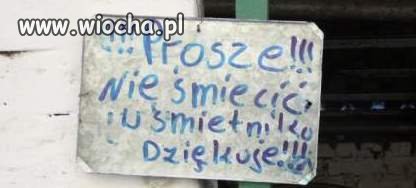 www.wiocha.pl
!!! Prosze!!!
Nie śmiecić
i u śmietniku
Dziękuje!!!